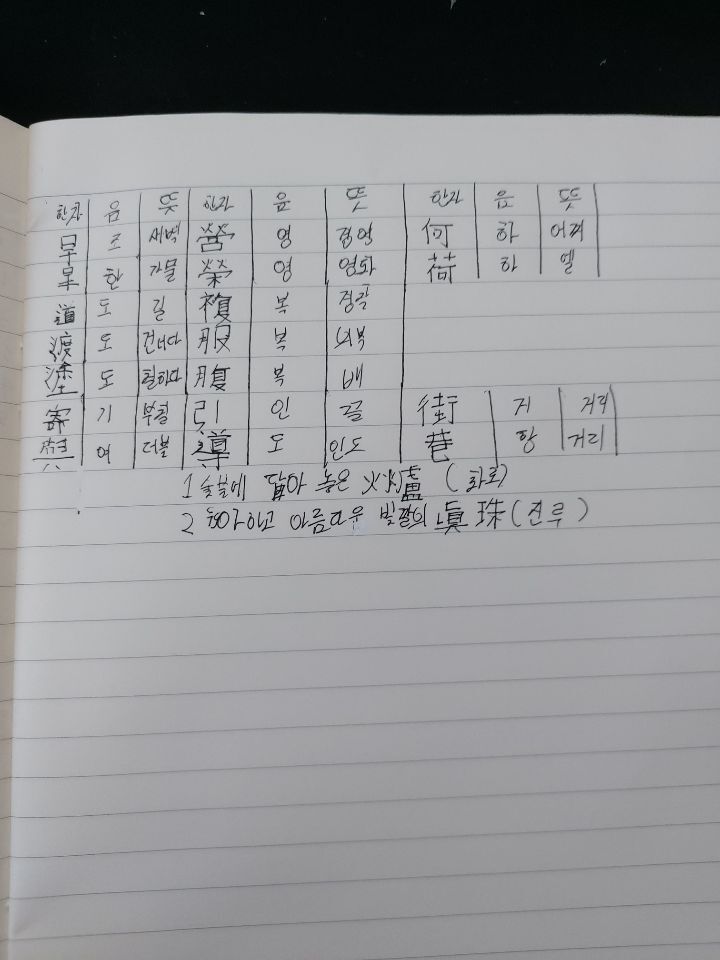 한자 음 뜻 한자 음 뜻 한자 음 뜻
早 조 새벽 營 영 경영 何 하 어찌
旱 한 가물 榮 영 영화 荷 하 멜
道 도 길 複 복 겹칠
渡 도 건너다 服 복 의복
塗 도 칠하다 腹 복 배
寄 기 부칠 引 인 끌 街 가 거리
與 여 더불 導 도 인도 巷 항 거리
1 숯불에 담아 놓은 火爐 (화로)
2 희고 아름다운 빛깔의 眞珠 (진주)